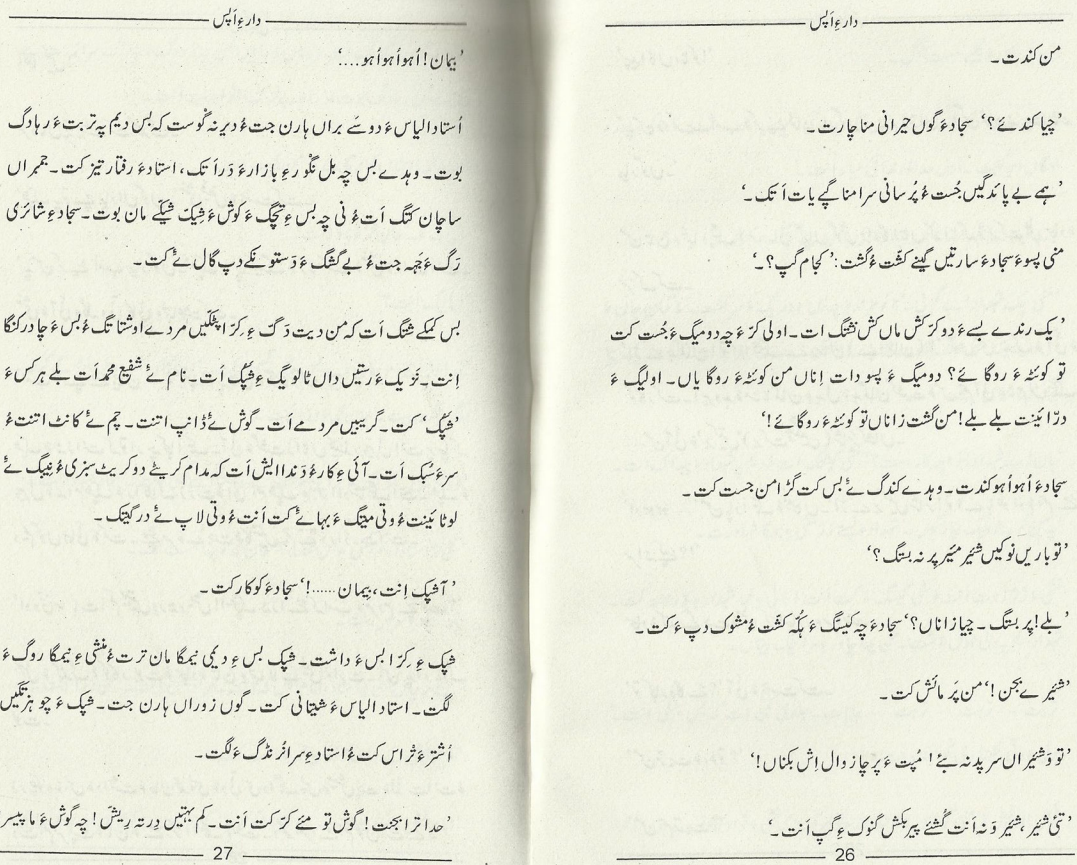 دار ءِ اَپس
من کندت۔
’چیا کندئے؟‘ سجادءَ گوں حیرانی منا چارت۔
’ہے بے پائدگیں جُست ءُ پُرسانی سرا منا گپے یات اَتک۔‘
منی پسوءَ سجادءَ سارتیں گینے کشّت ءُ گشت: ’کجام گپ؟۔‘
’یک رندے بسےءَ دو کرّکش ماں کش نشتگ ات۔ اولی کرّءَ چہ دومیگءَ جُست کت
تو کوئٹہءَ روگا ئے؟ دومیگ ءَ پسو دات اِناں من کوئٹہءَ روگا یاں۔ اولیگ ءَ
درّائینت بلے بلے! من گشت زاناں تو کوئٹہءَ روگائے!‘
سجادءَ اُہو اُہو کندت۔ وہدے کندگ ئے بس کت گڑا من جست کت۔
’تو باریں نوکیں شیئر میئر پر نہ بستگ؟‘
’بلے! پر بستگ۔ چیا زاناں؟‘ سجادءَ چہ کیسگ ءَ پُکّہ کشّت ءُ مشوک دپ ءَ کت۔
’شیئرے بجن!‘ من پَرمائش کت۔
’تو وَ شیئراں سرپد نہ بئے! مُپت ءَ پرچا زوال اِش بکناں!‘
’تئی شیئر، شیئر وَ نہ اَنت گُشئے پیربکش گنوک ءِ گپ اَنت۔‘
26
دار ءِ اَپس
’بیمان! اُہو اُہو اُہو....‘
اُستاد الیاس ءَ دوسّے براں ہارن جت ءُ دیر نہ گوست کہ بس دیم پہ تربت ءَ رہادگ
بوت۔ وہدے بس چہ بل نگور ءِ بازارءَ دَر اَتک، استادءَ رفتار تیز کت۔ جمبراں
ساچان کتگ اَت ءُ نی چہ بس ءِ تچگ ءَ گوش ءَ شِیک شیکّے مان بوت۔ سجادءِ شائری
رَگ ءَ جہہ جت ءُ بے گشگ ءَ دَستو نکے دپ گال ئے کت۔
بس کمکے شتگ اَت کہ من دیت دَگ ءِ کِرّا پٹکیں مردے اوشتاتگ ءُ بس ءَ چادر کنگا
اِنت۔ نزّیک ءَ رستیں داں تالویگ ءِ شپک اَت۔ نام ئے شفیع محمد اَت بلے ہرکس ءَ
’شپک‘ کت۔ گریبیں مردمے اَت۔ گوش ئے ڈانپ اتنت۔ چم ئے کانٹ اتنت ءُ
سرءَ سُبک اَت۔ آئی ءِ کار ءُ دَندا ایش اَت کہ مدام کریٹے دو کریٹ سبزی ءُ نِیبگ ئے
لوٹائینت ءُ وتی میتگ ءَ بہائے کت اَنت ءُ وتی لاپ ئے در گیتک۔
’آ شپک اِنت، بیمان ......!‘ سجادءَ کوکار کت۔
شپک ءِ کِرّا بس ءَ داشت۔ شپک بس ءِ دیمی نیمگا مان ترت ءُ منشی ءِ نیمگا روگ ءَ
لگت۔ استاد الیاس ءَ شیتانی کت۔ گوں زوراں ہارن جت۔ شپک ءَ چو ہژتگیں
اُشترءَ تراس کت ءُ استادءِ سرا غُرنڈگ ءَ لگت۔
’حدا ترا بجنت! گوش تو مئے کرّ کت اَنت۔ کم بہتیں دِرتہ رِیش! چہ گوش ءَ ما پیسر
27